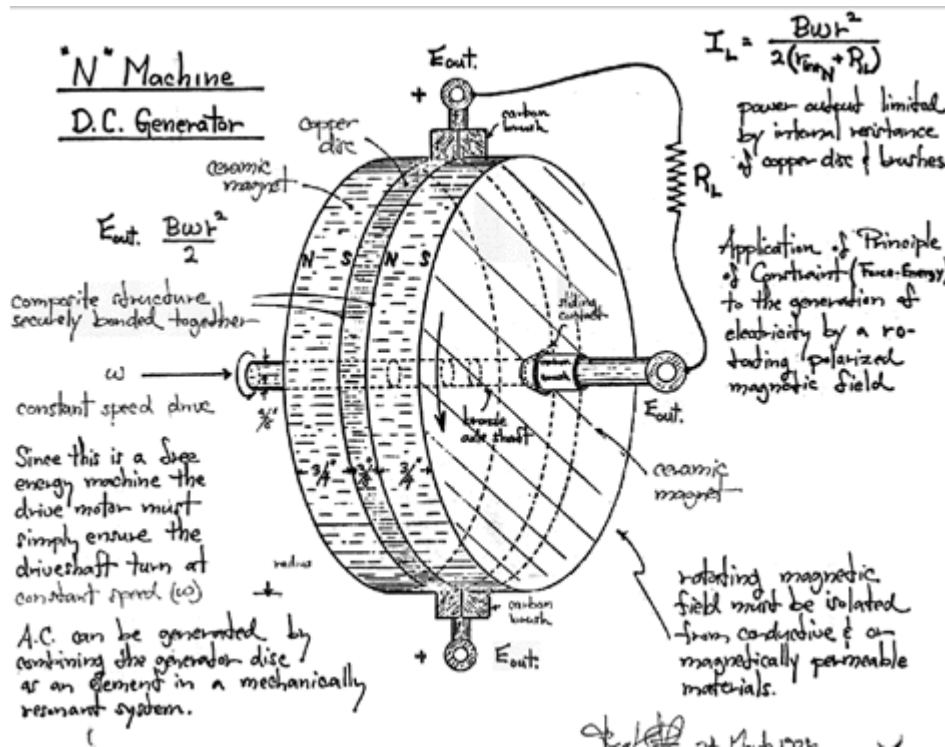 "N" Machine
D.C. Generator
Eout. Bωr²/2
composite structure
securely bonded together
ω
constant speed drive
Since this is a free
energy machine the
drive motor must
simply ensure the
driveshaft turn at
constant speed (ω)
A.C. can be generated by
combining the generator disc
as an element in a mechanically
resonant system.
Eout.
+
carbon
brush
copper
disc
ceramic
magnet
N S N S
sliding
contact
brush
bronze
axle shaft
3/4" 3/4"
radius
Eout.
ceramic
magnet
carbon
brush
+ Eout.
RL
IL = Bωr² / 2( + RL)
power output limited
by internal resistance
of copper disc & brushes
Application of Principle
of Constraint (Force-Energy)
to the generation of
electricity by a ro-
tating polarized
magnetic field
rotating magnetic
field must be isolated
from conductive & or
magnetically permeable
materials.